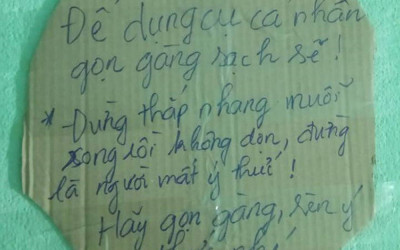 Để dụng cụ cá nhân
gọn gàng sạch sẽ!
* Đừng thắp nhang muỗi
xong rồi không dọn, đừng
là người mất ý thức!
Hãy gọn gàng, rèn ý